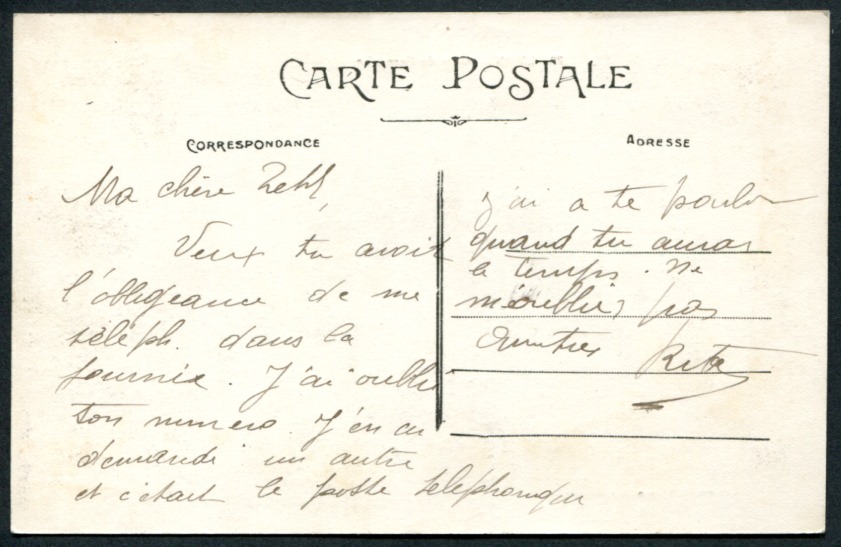 CARTE POSTALE
CORRESPONDANCE
ADRESSE
Ma chère
Veux tu avoir
l'obligeance de me
téléph. dans la
journée. J'ai oublié
ton numero. J'en ai
demandé un autre
et c'était le poste telephonique
j'ai a te parler
quand tu auras
le temps. Ne
m'oublies pas
Rita